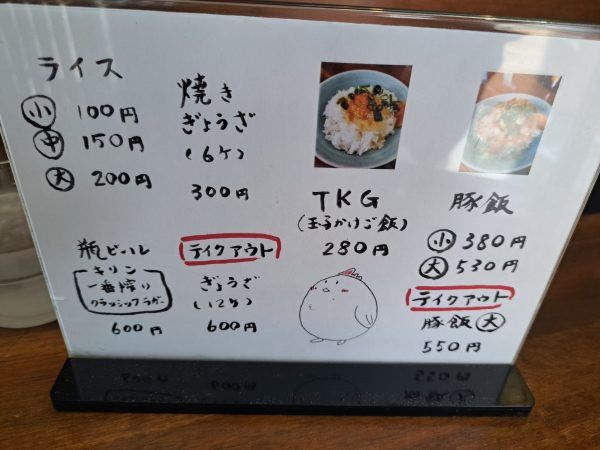 ライス
小 100円
中 150円
大 200円
焼き
ぎょうざ
(6ケ)
300円
TKG
(玉子かけご飯)
280円
豚飯
小 380円
大 530円
瓶ビール
キリン
一番搾り
クラシックラガー
600円
テイクアウト
ぎょうざ
(12ケ)
600円
テイクアウト
豚飯 大
550円